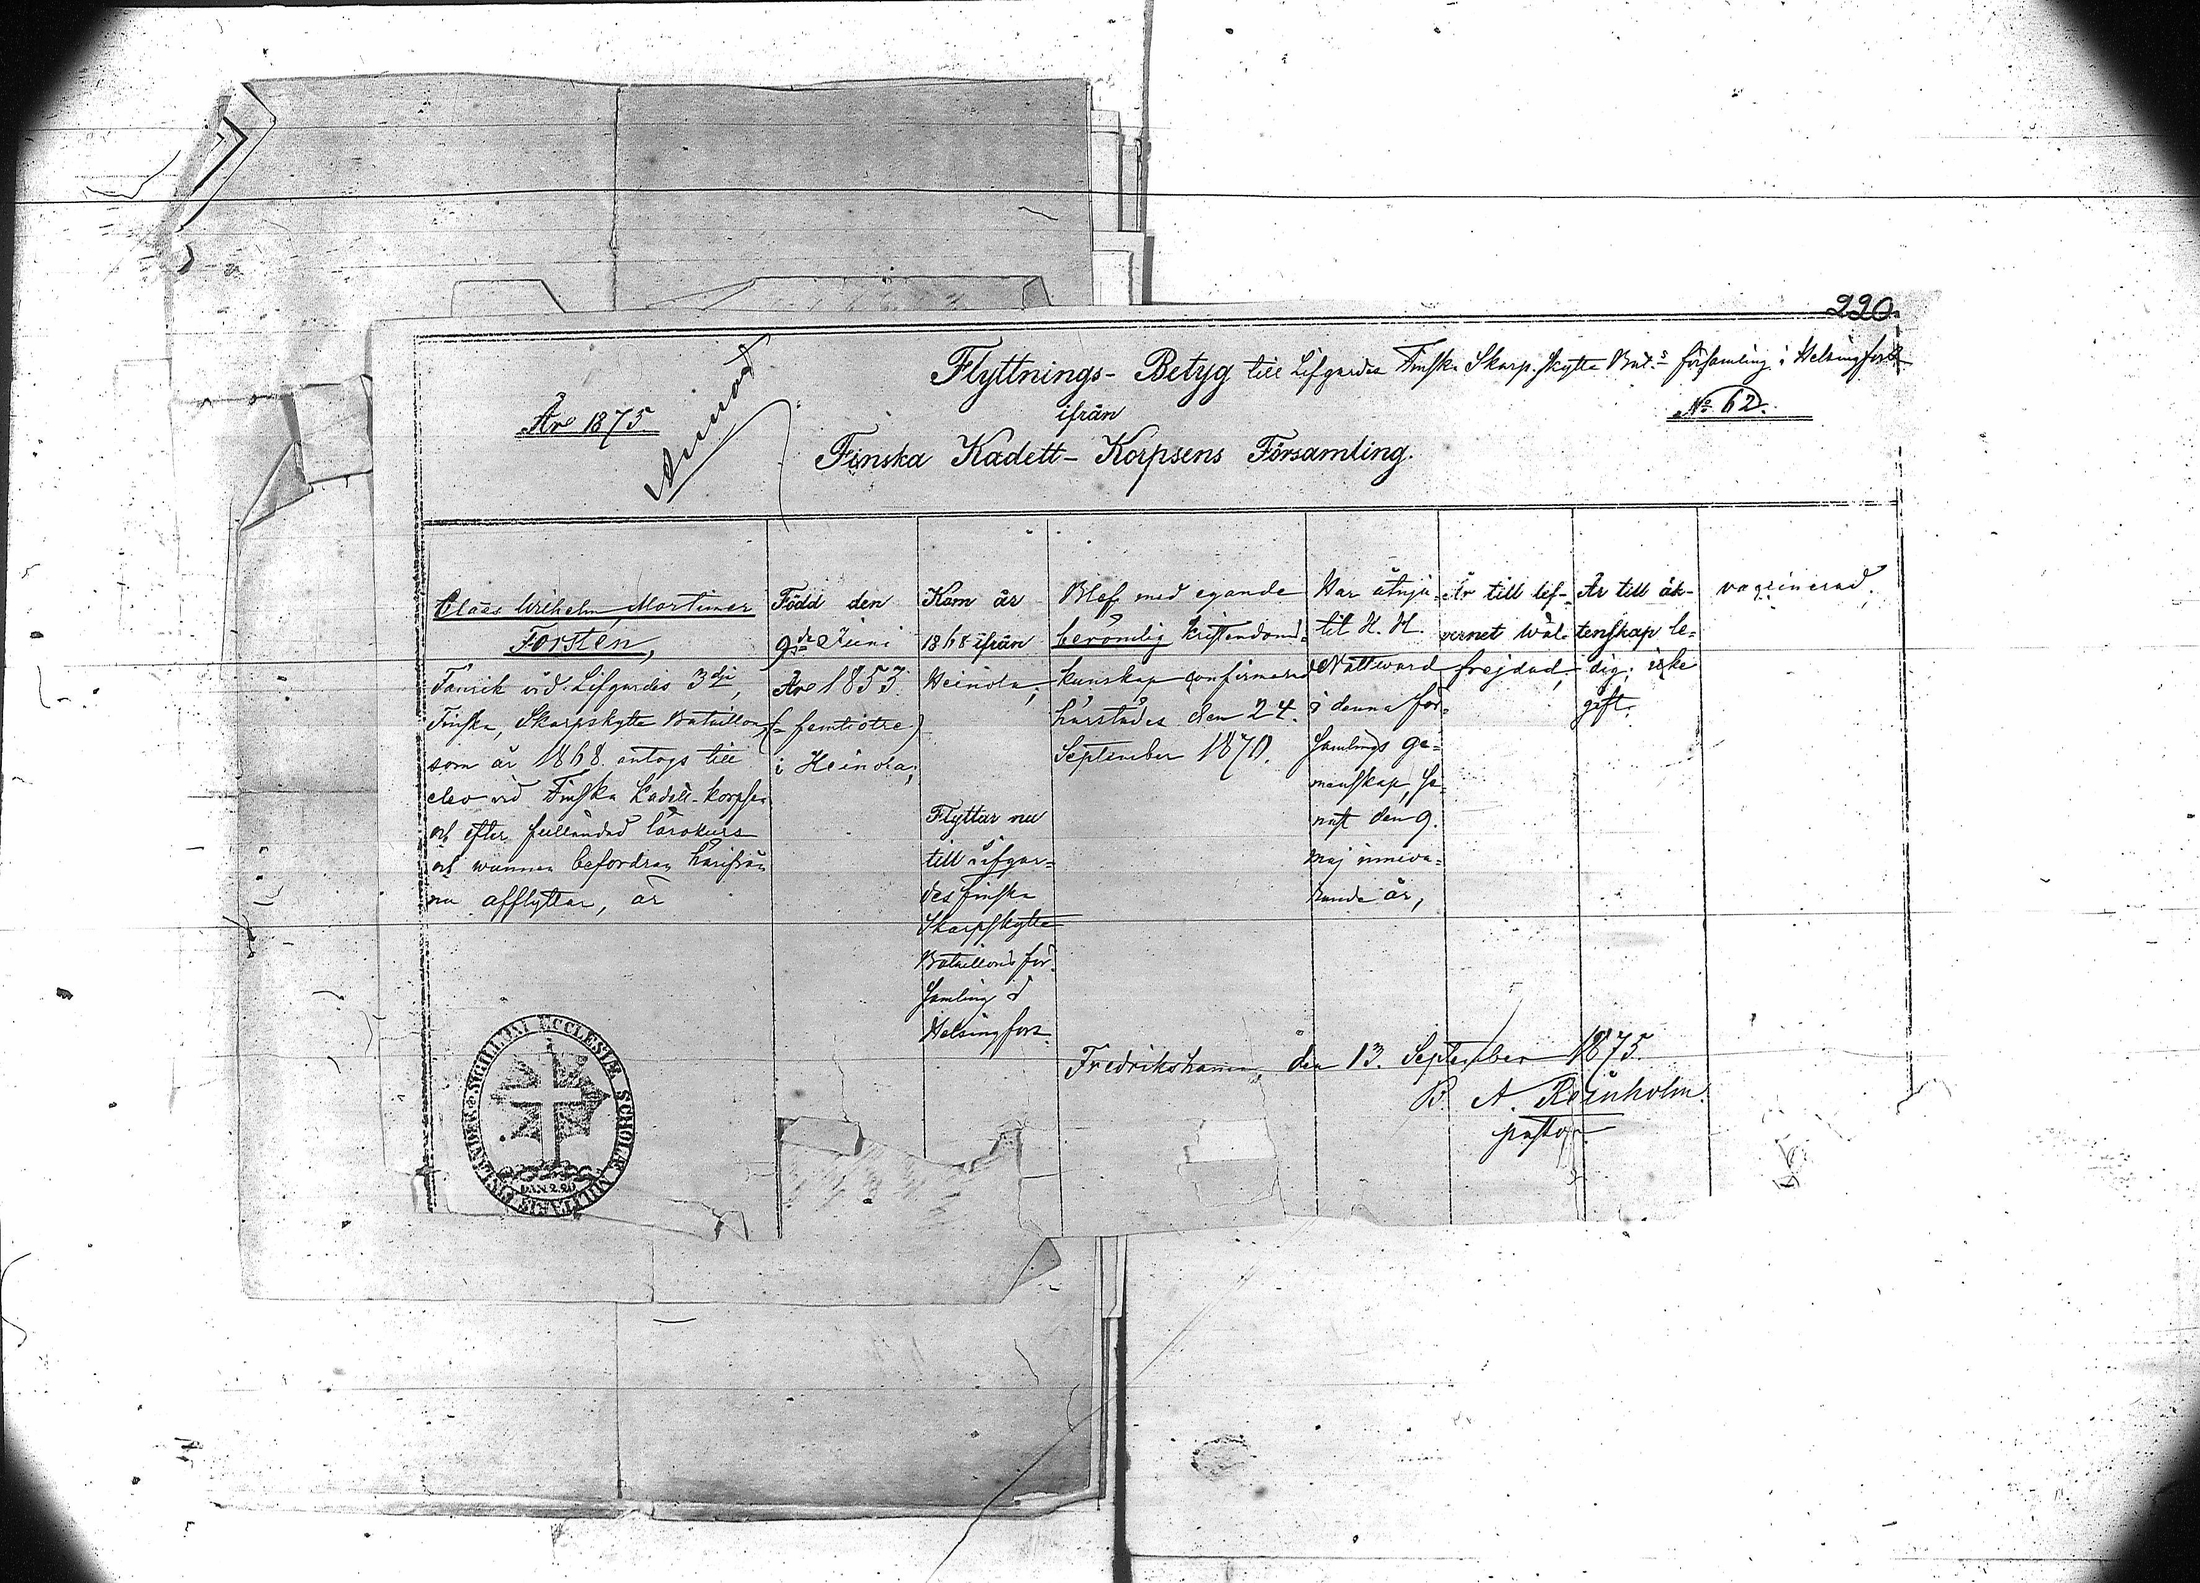 220.
Flyttnings-Betyg till Lifgardes Finska Skarp.skytte Bat.s församling i Helsingfors
År 1875.
ifrån
No 62.
Finska Kadett-Korpsens Församling.
Claës Wilhelm Mortimer
Forsten,
Fänrik vid Lifgardes 3dje
Finska Skarpskytte Bataillon,
som år 1868 antogs till
elev vid Finska Kadett-korpsen
och efter fulländad lärokurs
och wunnen befordran härifrån
nu afflyttar, är
Född den
9de Juni
År 1853.
(= femtiotre)
i Heinola;
Kom år
1868 ifrån
Heinola;
Flyttar nu
till Lifgar-
des finska
Skarpskytte
Bataillons för-
samling i
Helsingfors.
Blef med egande
berömlig kristendoms-
kunskap confirmerad
härstädes den 24.
September 1870.
Har åtnju-
tit H. H.
Nattward
i denna för-
samlings ge-
menskap, se-
nast den 9.
Maj inneva-
rande år,
Är till lef-
vernet wäl-
frejdad;
Är till äk-
tenskap le-
dig; icke
gift;
vaccinerad.
Fredrikshamn, den 13. September 1875.
B. A. Reinholm.
pastor.
SIGILLUM ECCLESIÆ SCHOLÆ MILITARIS FINLANDIÆ